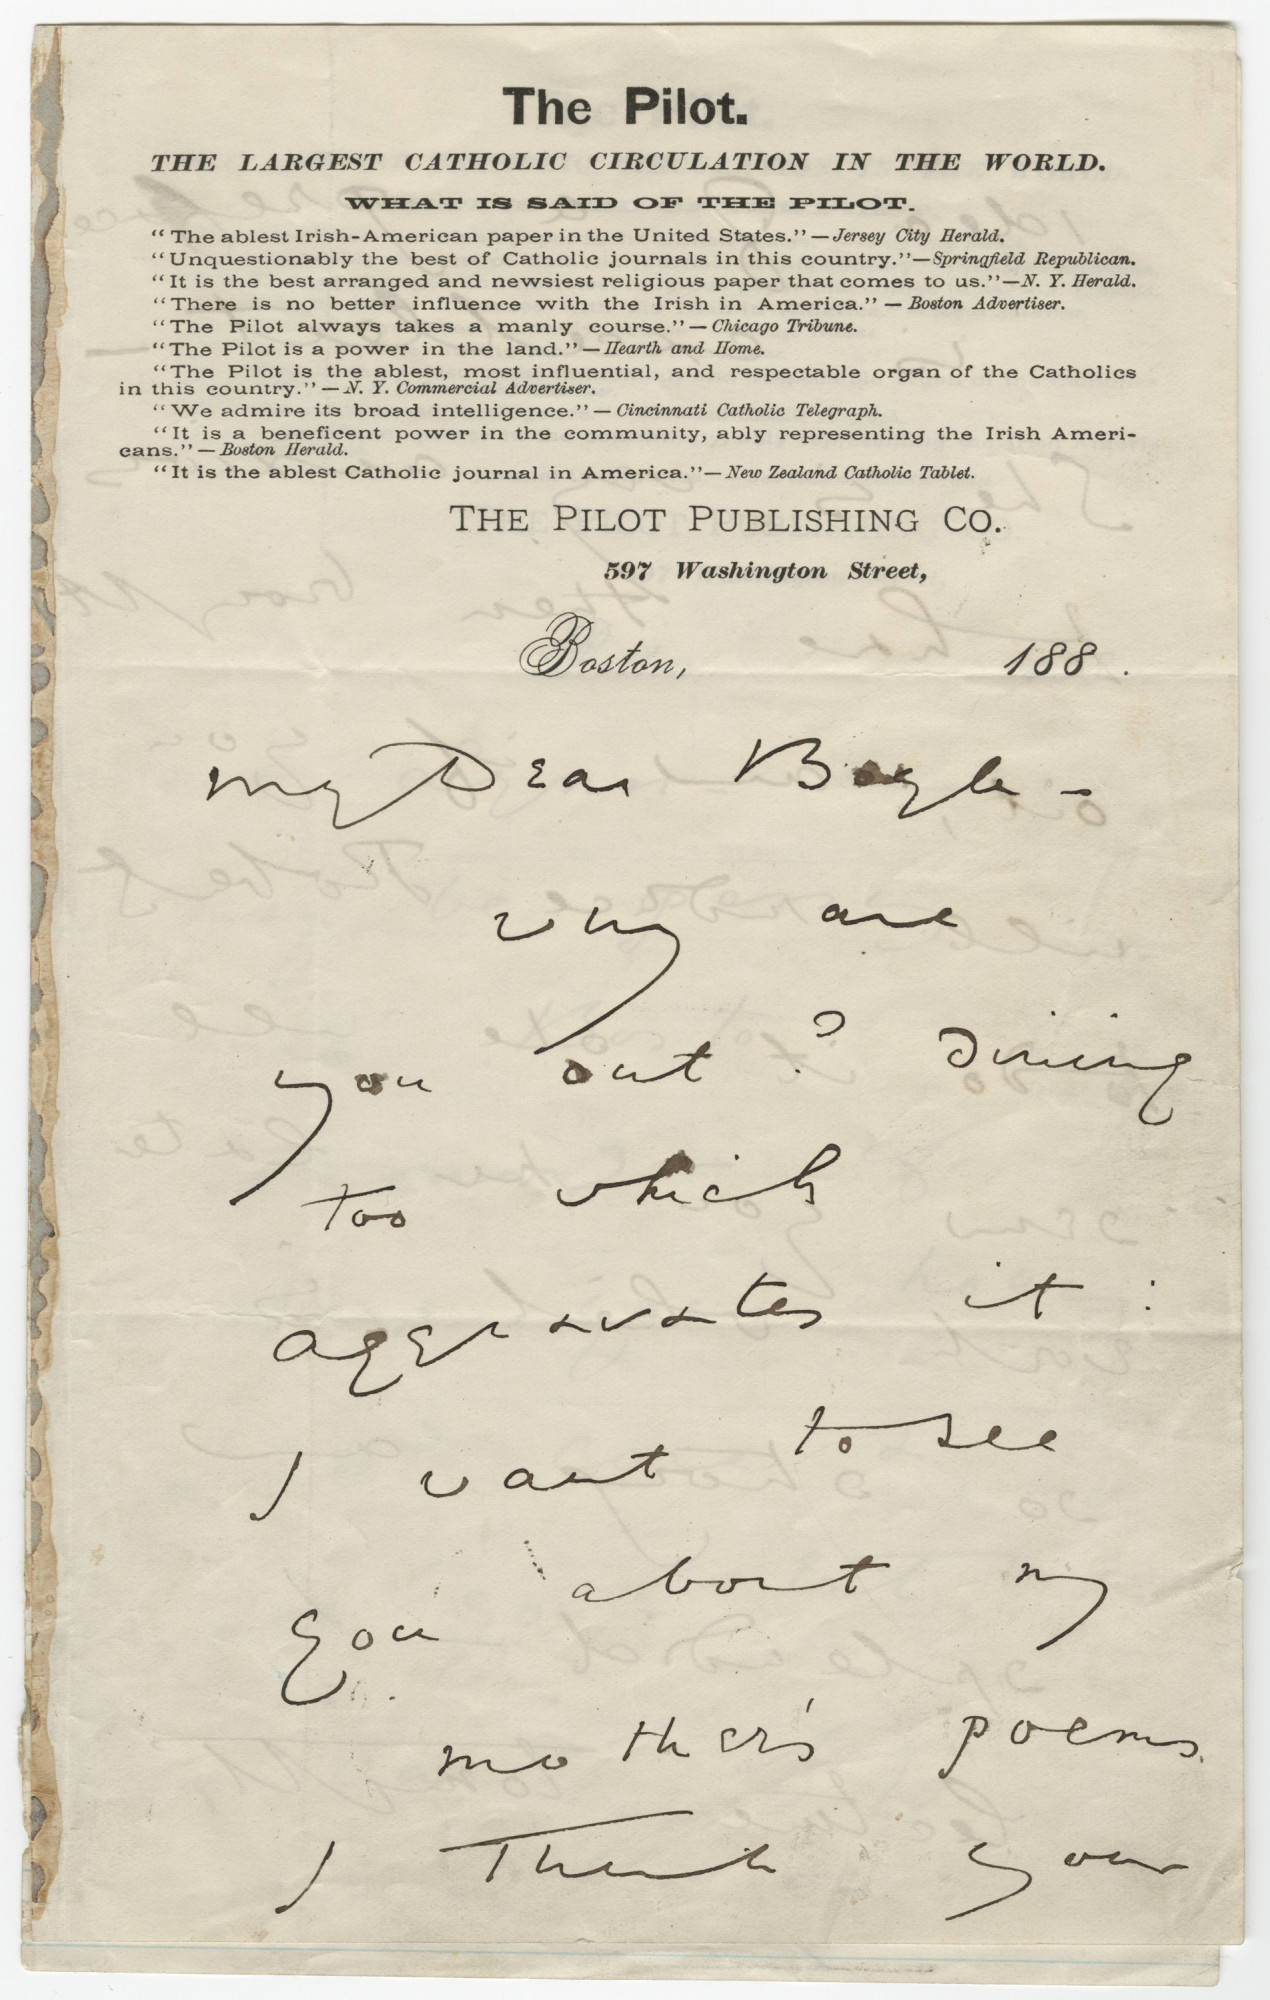 The Pilot.
THE LARGEST CATHOLIC CIRCULATION IN THE WORLD.
WHAT IS SAID OF THE PILOT.
"The ablest Irish-American paper in the United States."—Jersey City Herald.
"Unquestionably the best of Catholic journals in this country."—Springfield Republican.
"It is the best arranged and newsiest religious paper that comes to us."—N. Y. Herald.
"There is no better influence with the Irish in America."—Boston Advertiser.
"The Pilot always takes a manly course."—Chicago Tribune.
"The Pilot is a power in the land."—Hearth and Home.
"The Pilot is the ablest, most influential, and respectable organ of the Catholics
in this country."—N. Y. Commercial Advertiser.
"We admire its broad intelligence."—Cincinnati Catholic Telegraph.
"It is a beneficent power in the community, ably representing the Irish Ameri-
cans."—Boston Herald.
"It is the ablest Catholic journal in America."—New Zealand Catholic Tablet.
THE PILOT PUBLISHING CO.
597 Washington Street,
Boston, 188 .
My Dear Boyle -
why are
you out? Dining
too which
aggravates it:
I want to see
you about my
mother's poems.
I think your